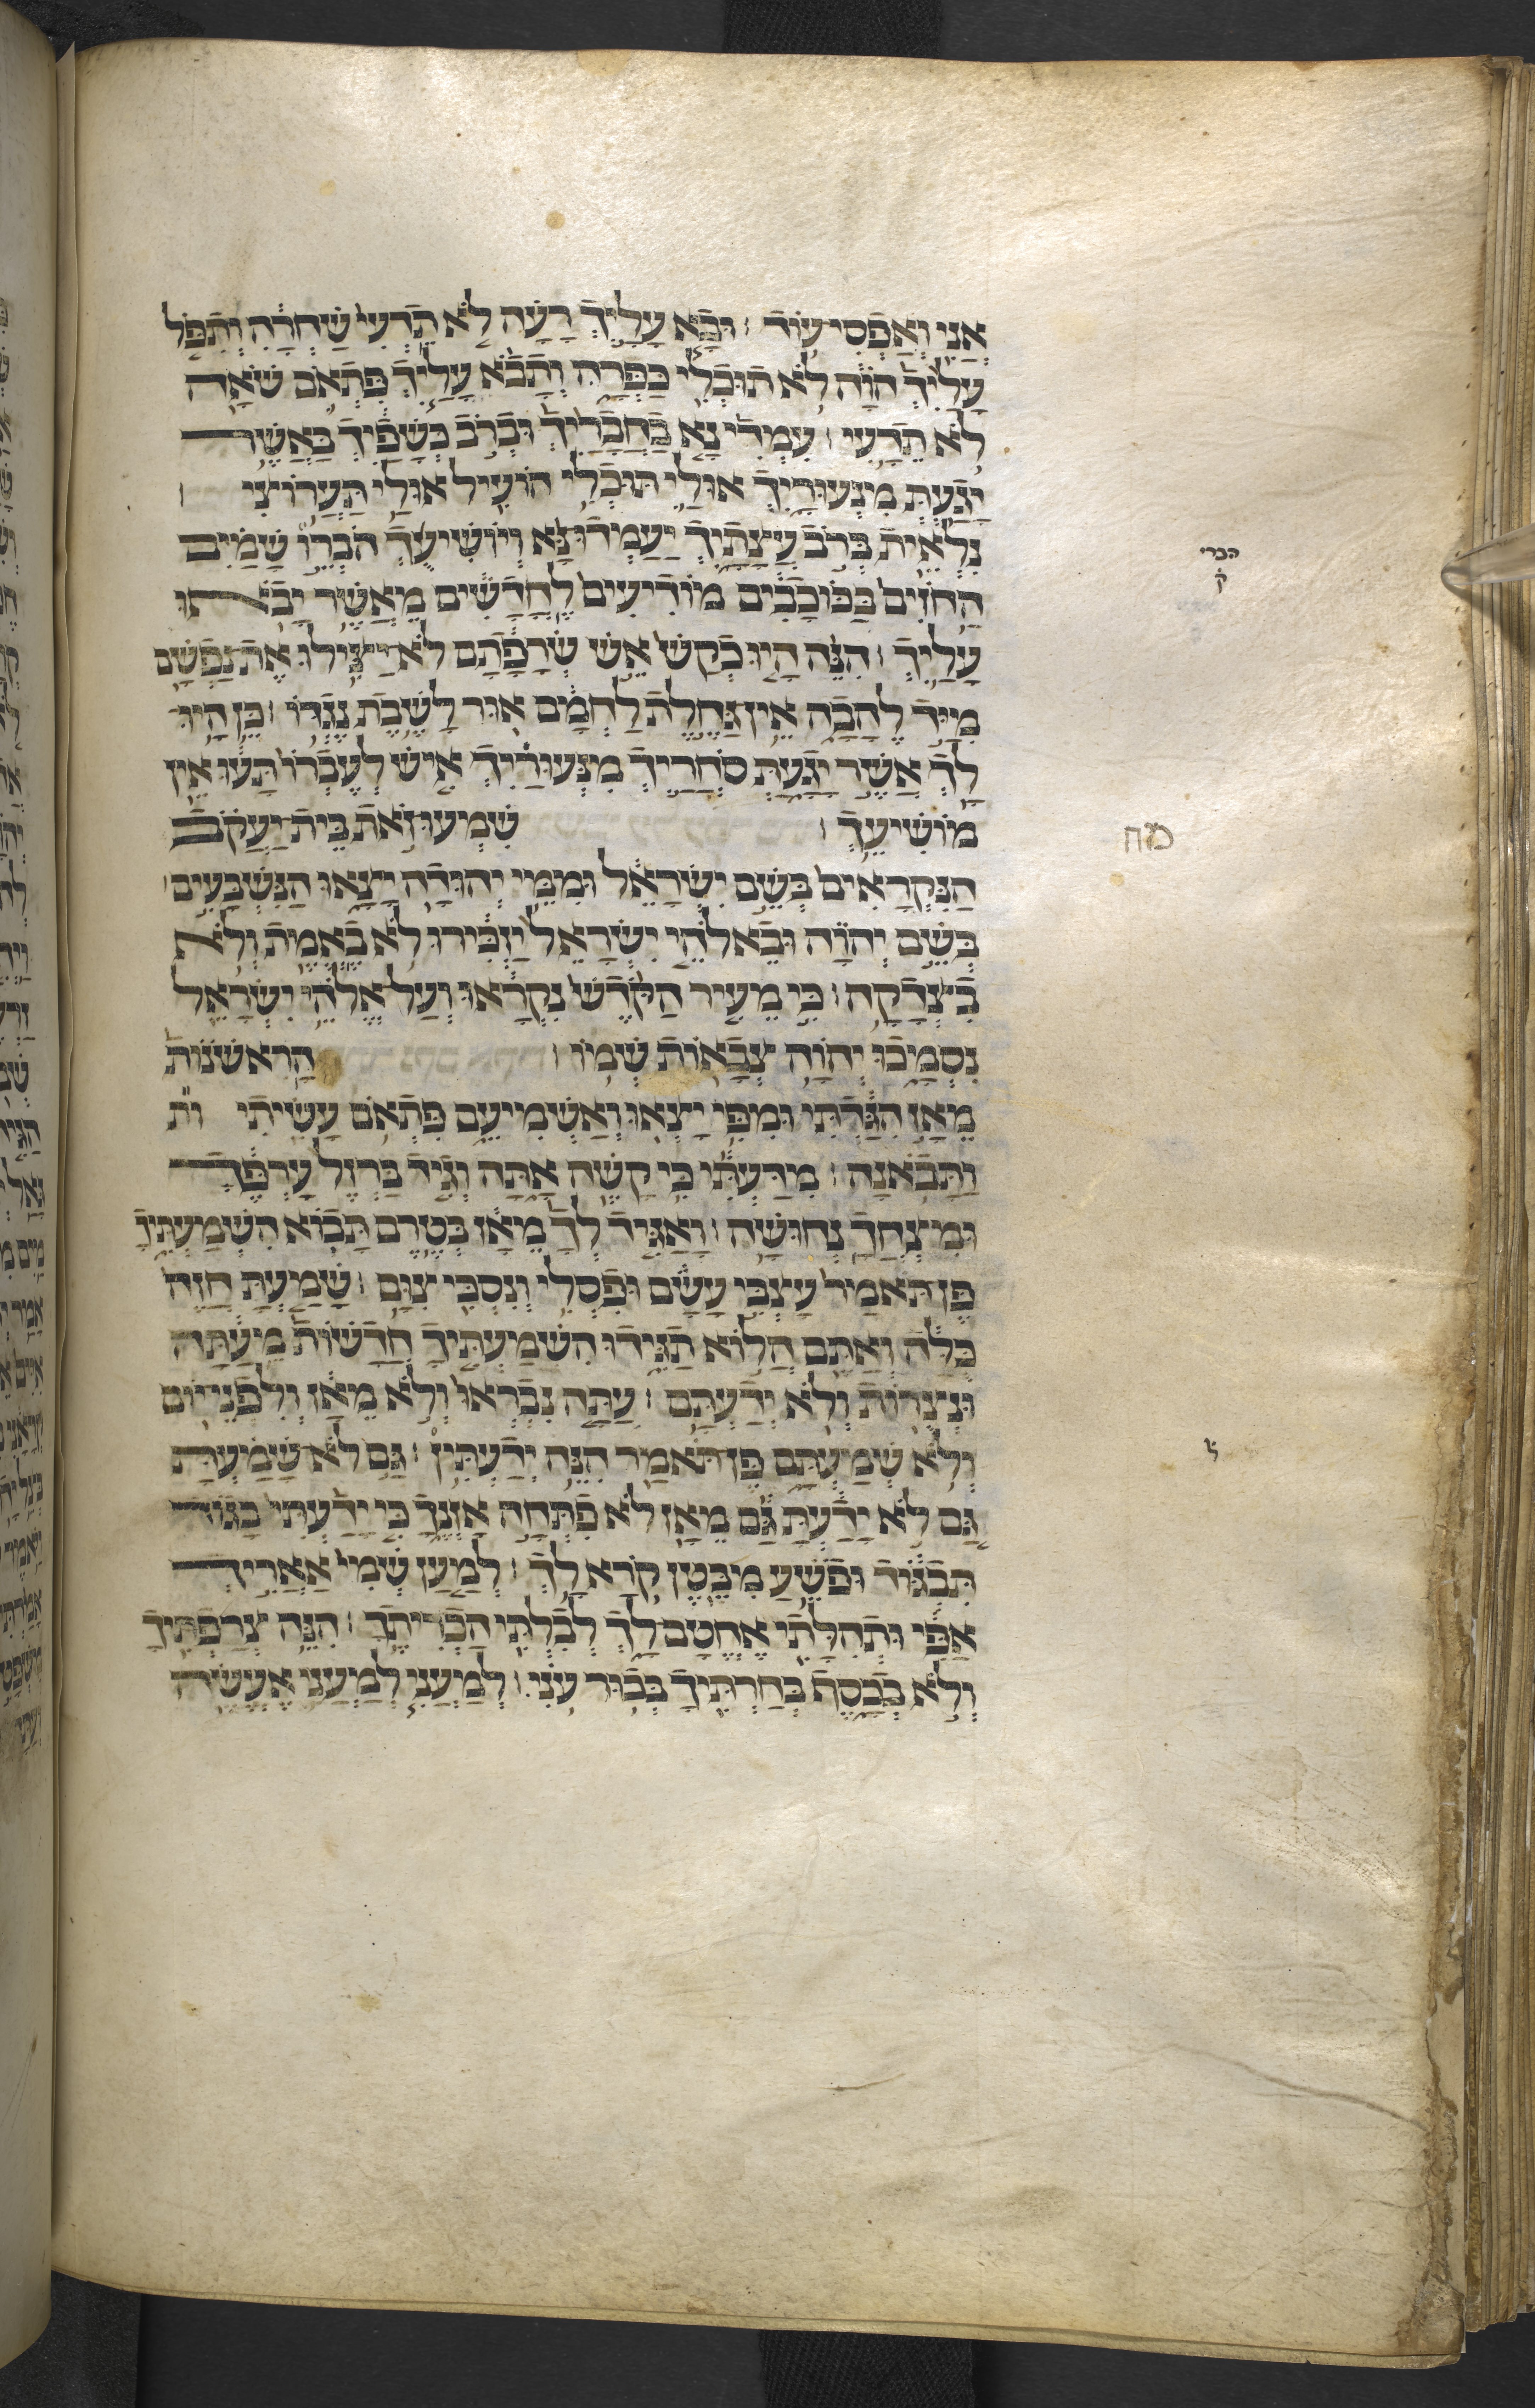 אֲנִי וְאַפְסִי עוֹד׃ וּבָא עָלַיִךְ רָעָה לֹא תֵדְעִי שַׁחְרָהּ וְתִפֹּל
עָלַיִךְ הֹוָה לֹא תוּכְלִי כַּפְּרָהּ וְתָבֹא עָלַיִךְ פִּתְאֹם שֹׁאָה
לֹא תֵדָעִי׃ עִמְדִי נָא בַחֲבָרַיִךְ וּבְרֹב כְּשָׁפַיִךְ בַּאֲשֶׁר
יָגַעַתְּ מִנְּעוּרָיִךְ אוּלַי תּוּכְלִי הוֹעִיל אוּלַי תַּעֲרוֹצִי׃
נִלְאֵית בְּרֹב עֲצָתָיִךְ יַעַמְדוּ נָא וְיוֹשִׁיעֻךְ הֹבְרֵו שָׁמַיִם
הַחֹזִים בַּכּוֹכָבִים מוֹדִיעִים לֶחֳדָשִׁים מֵאֲשֶׁר יָבֹאוּ
עָלָיִךְ׃ הִנֵּה הָיוּ כְקַשׁ אֵשׁ שְׂרָפָתַם לֹא יַצִּילוּ אֶת נַפְשָׁם
מִיַּד לֶהָבָה אֵין גַּחֶלֶת לַחְמָם אוּר לָשֶׁבֶת נֶגְדּוֹ׃ כֵּן הָיוּ
לָךְ אֲשֶׁר יָגָעַתְּ סֹחֲרַיִךְ מִנְּעוּרַיִךְ אִישׁ לְעֶבְרוֹ תָּעוּ אֵין
מוֹשִׁיעֵךְ׃ שִׁמְעוּ זֹאת בֵּית יַעֲקֹב
הַנִּקְרָאִים בְּשֵׁם יִשְׂרָאֵל וּמִמֵּי יְהוּדָה יָצָאוּ הַנִּשְׁבָּעִים׀
בְּשֵׁם יְהוָה וּבֵאלֹהֵי יִשְׂרָאֵל יַזְכִּירוּ לֹא בֶאֱמֶת וְלֹא
בִצְדָקָה׃ כִּי מֵעִיר הַקֹּדֶשׁ נִקְרָאוּ וְעַל אֱלֹהֵי יִשְׂרָאֵל
נִסְמָכוּ יְהוָה צְבָאוֹת שְׁמוֹ׃ הָרִאשֹׁנוֹת
מֵאָז הִגַּדְתִּי וּמִפִּי יָצְאוּ וְאַשְׁמִיעֵם פִּתְאֹם עָשִׂיתִי ות
וַתָּבֹאנָה׃ מִדַּעְתִּי כִּי קָשֶׁה אָתָּה וְגִיד בַּרְזֶל עָרְפֶּךָ
וּמִצְחֲךָ נְחוּשָׁה׃ וָאַגִּיד לְךָ מֵאָז בְּטֶרֶם תָּבוֹא הִשְׁמַעְתִּיךָ
פֶּן תֹּאמַר עָצְבִּי עָשָׂם וּפִסְלִי וְנִסְכִּי צִוָּם׃ שָׁמַעְתָּ חֲזֵה
כֻּלָּהּ וְאַתֶּם הֲלוֹא תַגִּידוּ הִשְׁמַעְתִּיךָ חֲדָשׁוֹת מֵעַתָּה
וּנְצֻרוֹת וְלֹא יְדַעְתָּם׃ עַתָּה נִבְרְאוּ וְלֹא מֵאָז וְלִפְנֵי יוֹם
וְלֹא שְׁמַעְתָּם פֶּן תֹּאמַר הִנֵּה יְדַעְתִּין׃ גַּם לֹא שָׁמַעְתָּ
גַּם לֹא יָדַעְתָּ גַּם מֵאָז לֹא פִתְּחָה אָזְנֶךָ כִּי יָדַעְתִּי בָּגוֹד
תִּבְגּוֹד וּפֹשֵׁעַ מִבֶּטֶן קֹרָא לָךְ׃ לְמַעַן שְׁמִי אַאֲרִיךְ
אַפִּי וּתְהִלָּתִי אֶחֱטָם לָךְ לְבִלְתִּי הַכְרִיתֶךָ׃ הִנֵּה צְרַפְתִּיךָ
וְלֹא בְכָסֶף בְּחַרְתִּיךָ בְּכוּר עֹנִי׃ לְמַעֲנִי לְמַעֲנִי אֶעֱשֶׂה
הברי
ק
מח
ל